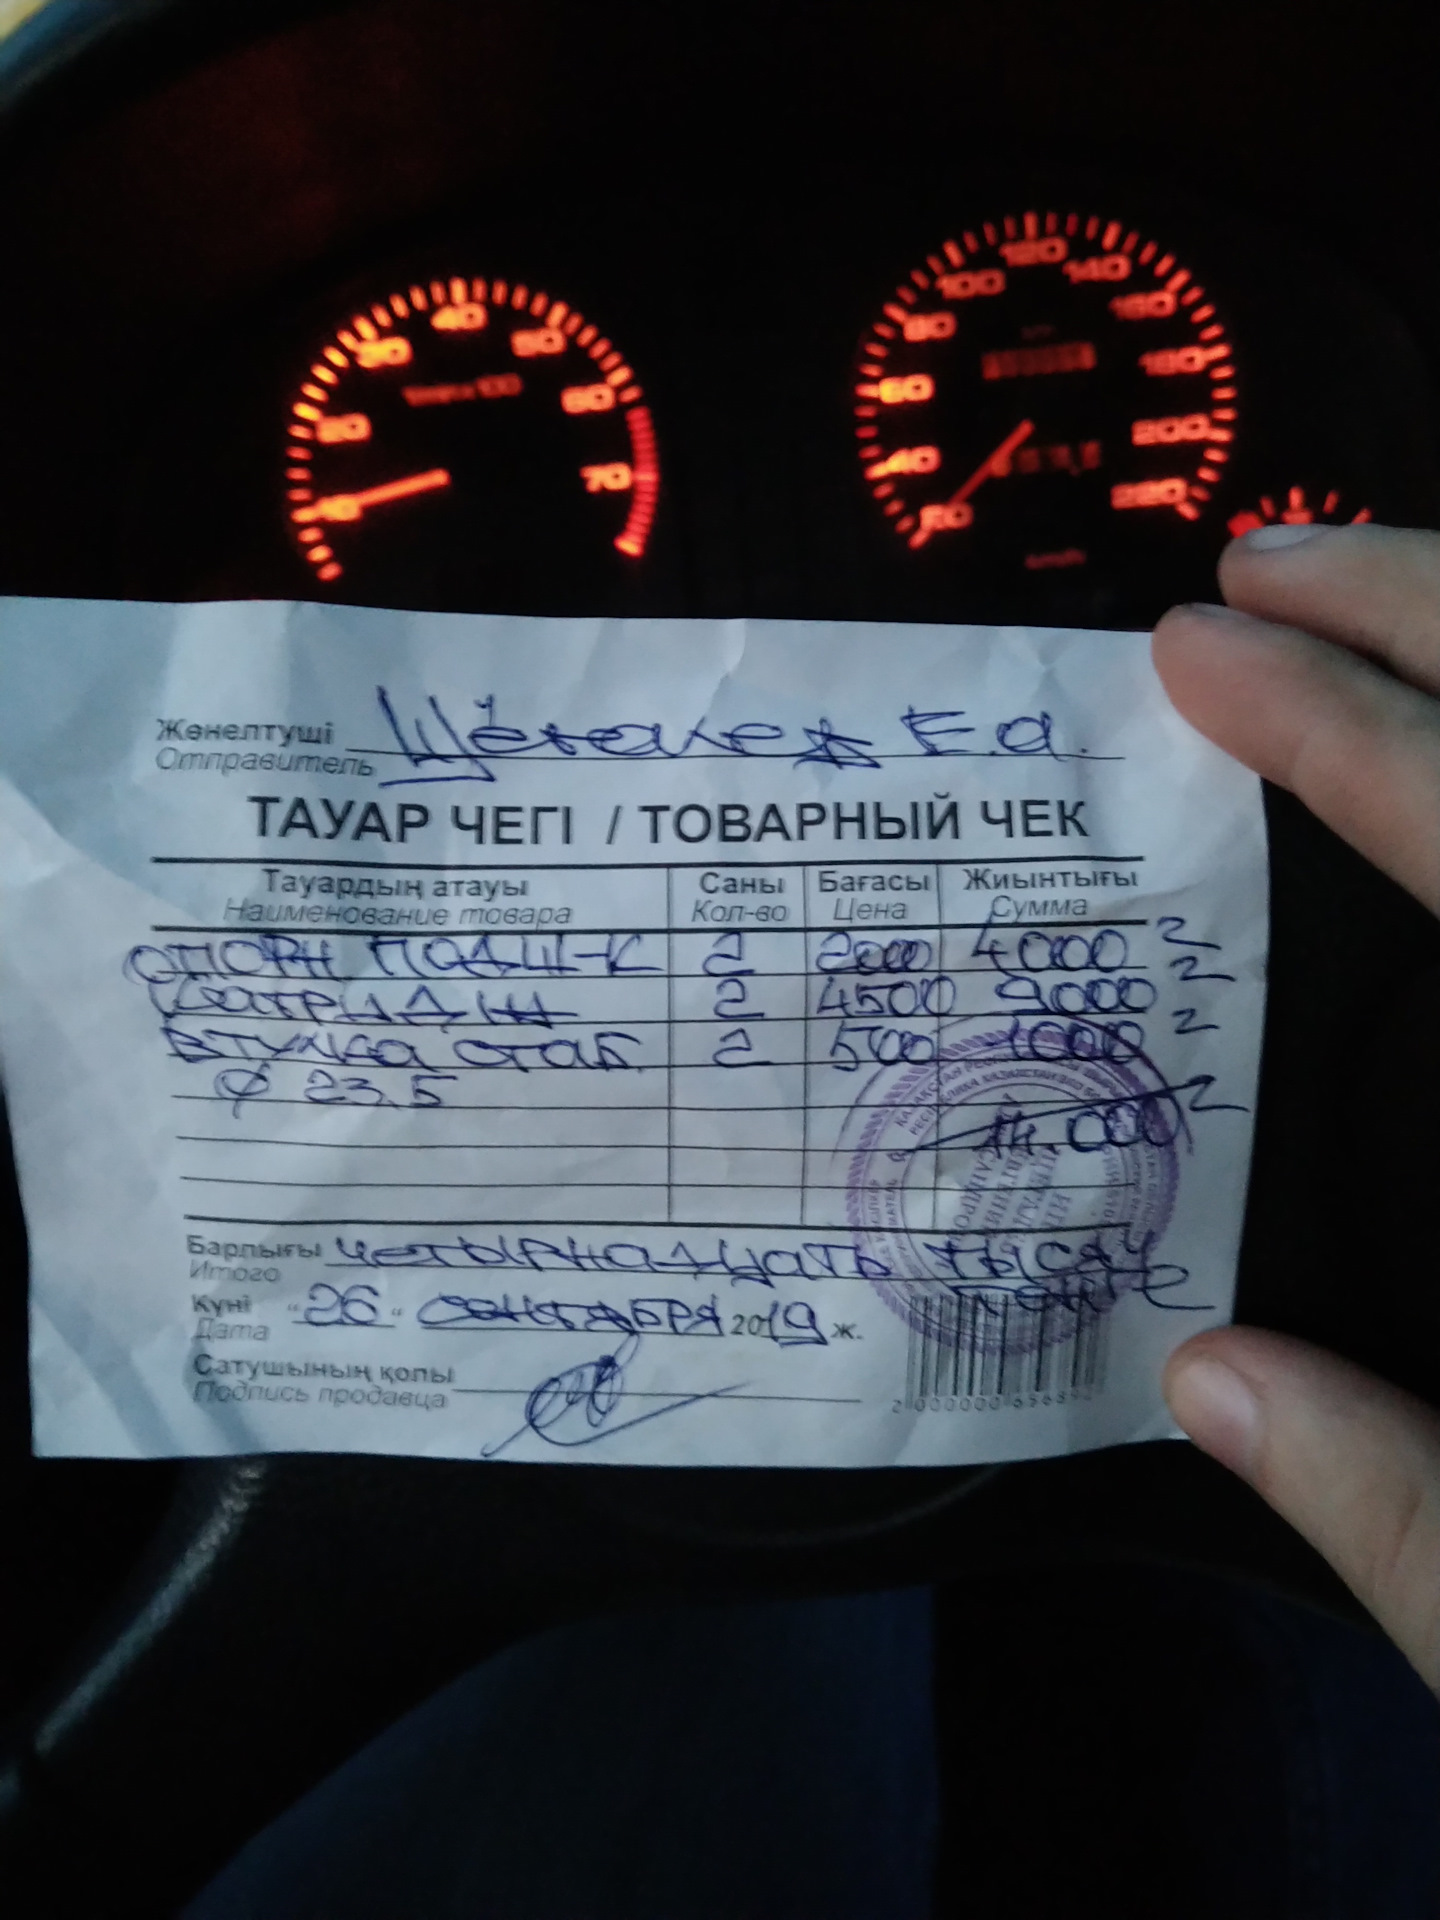 40
30
50
1/min x 100
60
20
70
10
120
100
140
80
160
60
180
40
200
20
220
km/h
Жөнелтуші
Отправитель Е.а.
ТАУАР ЧЕГІ / ТОВАРНЫЙ ЧЕК
Тауардың атауы Саны Бағасы Жиынтығы
Наименование товара Кол-во Цена Сумма
ОПОРН ПОДШ-К 2 2000 4000
Катридж 2 4500 9000
Втулка стаб. 2 500 1000
ф 23.5
14.000
Барлығы четырнадцать тысяч
Итого тенге
Күні "26" сентября 2019 ж.
Дата
Сатушының қолы
Подпись продавца